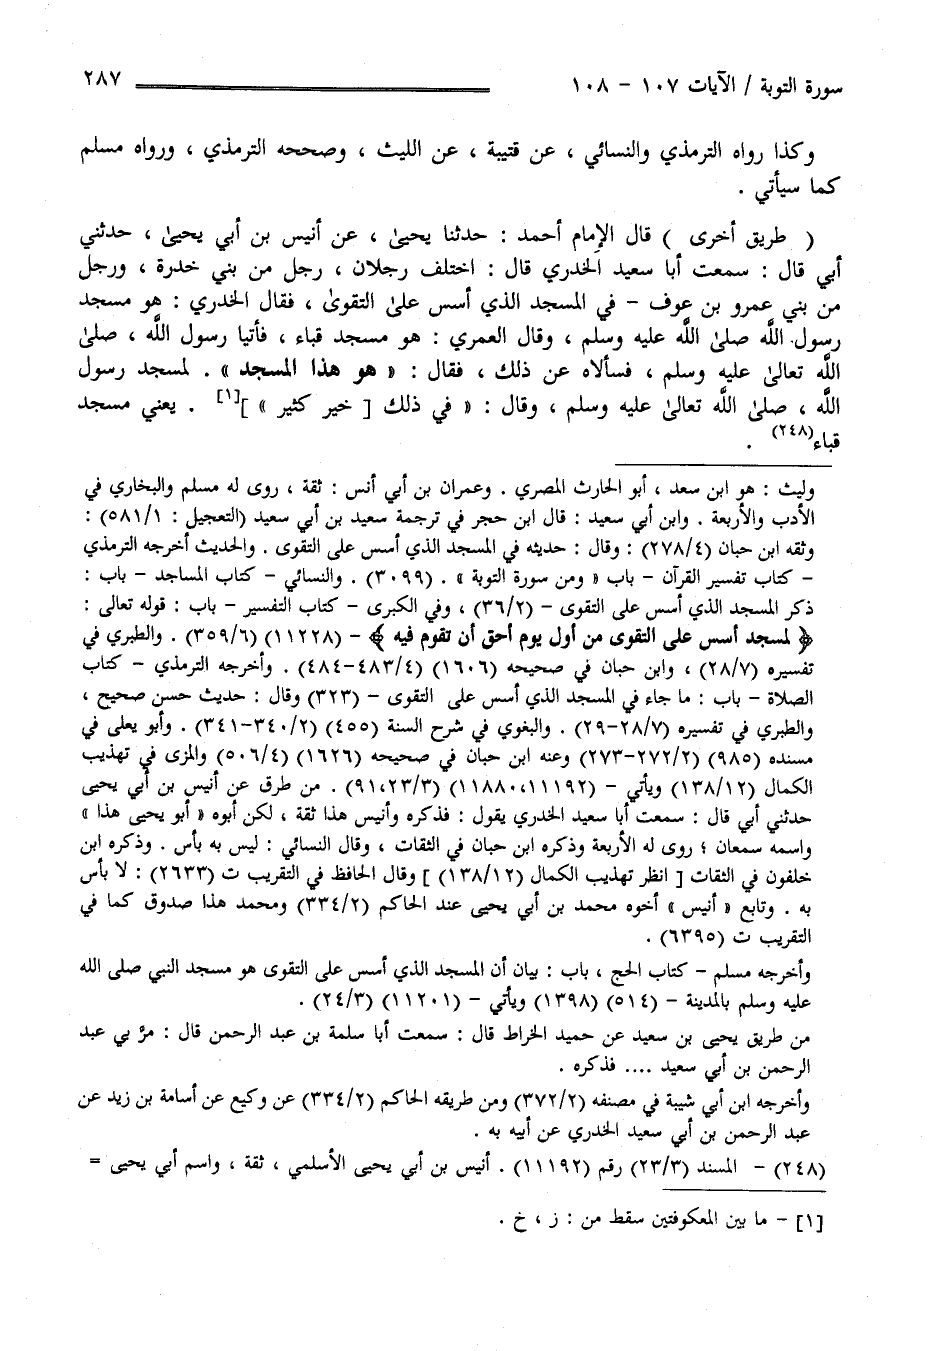 سورة التوبة / الآيات ١٠٧ - ١٠٨ ٢٨٧
وكذا رواه الترمذي والنسائي ، عن قتيبة ، عن الليث ، وصححه الترمذي ، ورواه مسلم
كما سيأتي .
( طريق أخرى ) قال الإمام أحمد : حدثنا يحيىٰ ، عن أنيس بن أبي يحيىٰ ، حدثني
أبي قال : سمعت أبا سعيد الخدري قال : اختلف رجلان ، رجل من بني خدرة ، ورجل
من بني عمرو بن عوف - في المسجد الذي أسس علىٰ التقوىٰ ، فقال الخدري : هو مسجد
رسول اللَّه صلىٰ اللَّه عليه وسلم ، وقال العمري : هو مسجد قباء ، فأتيا رسول اللَّه ، صلىٰ
اللَّه تعالىٰ عليه وسلم ، فسألاه عن ذلك ، فقال : « هو هذا المسجد » . لمسجد رسول
اللَّه ، صلىٰ اللَّه تعالىٰ عليه وسلم ، وقال : « في ذلك [ خير كثير » ][١] . يعني مسجد
قباء(٢٤٨) .
وليث : هو ابن سعد ، أبو الحارث المصري . وعمران بن أبي أنس : ثقة ، روى له مسلم والبخاري في
الأدب والأربعة . وابن أبي سعيد : قال ابن حجر في ترجمة سعيد بن أبي سعيد (التعجيل : ٥٨١/١) :
وثقه ابن حبان (٢٧٨/٤) : وقال : حديثه في المسجد الذي أسس على التقوى . والحديث أخرجه الترمذي
- كتاب تفسير القرآن - باب « ومن سورة التوبة » . (٣٠٩٩) . والنسائي - كتاب المساجد - باب :
ذكر المسجد الذي أسس على التقوى - (٣٦/٢) ، وفي الكبرى - كتاب التفسير - باب : قوله تعالى :
﴿ لمسجد أسس على التقوى من أول يوم أحق أن تقوم فيه ﴾ - (١١٢٢٨) (٣٥٩/٦) . والطبري في
تفسيره (٢٨/٧) ، وابن حبان في صحيحه (١٦٠٦) (٤٨٣/٤-٤٨٤) . وأخرجه الترمذي - كتاب
الصلاة - باب : ما جاء في المسجد الذي أسس على التقوى - (٣٢٣) وقال : حديث حسن صحيح ،
والطبري في تفسيره (٢٨/٧-٢٩) . والبغوي في شرح السنة (٤٥٥) (٣٤٠/٢-٣٤١) . وأبو يعلى في
مسنده (٩٨٥) (٢٧٢/٢-٢٧٣) وعنه ابن حبان في صحيحه (١٦٢٦) (٥٠٦/٤) والمزى في تهذيب
الكمال (١٣٨/١٢) ويأتي - (١١١٩٢،١١٨٨٠) (٩١،٢٣/٣) . من طرق عن أنيس بن أبي يحيى
حدثني أبي قال : سمعت أبا سعيد الخدري يقول : فذكره وأنيس هذا ثقة ، لكن أبوه « أبو يحيى هذا »
واسمه سمعان ؛ روى له الأربعة وذكره ابن حبان في الثقات ، وقال النسائي : ليس به بأس . وذكره ابن
خلفون في الثقات [ انظر تهذيب الكمال (١٣٨/١٢) ] وقال الحافظ في التقريب ت (٢٦٣٣) : لا بأس
به . وتابع « أنيس » أخوه محمد بن أبي يحيى عند الحاكم (٣٣٤/٢) ومحمد هذا صدوق كما في
التقريب ت (٦٣٩٥) .
وأخرجه مسلم - كتاب الحج ، باب : بيان أن المسجد الذي أسس على التقوى هو مسجد النبي صلى الله
عليه وسلم بالمدينة - (٥١٤) (١٣٩٨) ويأتي - (١١٢٠١) (٢٤/٣) .
من طريق يحيى بن سعيد عن حميد الخراط قال : سمعت أبا سلمة بن عبد الرحمن قال : مرَّ بي عبد
الرحمن بن أبي سعيد .... فذكره .
وأخرجه ابن أبي شيبة في مصنفه (٣٧٢/٢) ومن طريقه الحاكم (٣٣٤/٢) عن وكيع عن أسامة بن زيد عن
عبد الرحمن بن أبي سعيد الخدري عن أبيه به .
(٢٤٨) - المسند (٢٣/٣) رقم (١١١٩٢) . أنيس بن أبي يحيى الأسلمي ، ثقة ، واسم أبي يحيى =
[١] - ما بين المعكوفتين سقط من : ز ، خ .